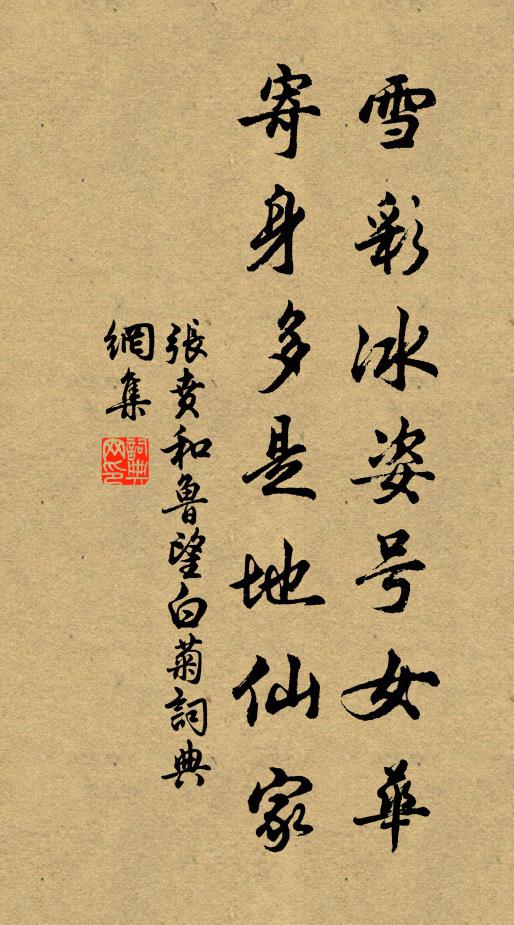 雪彩冰姿号女華
寄身多是地仙家
張賁和魯望白菊詞典
網集
詞典
网印